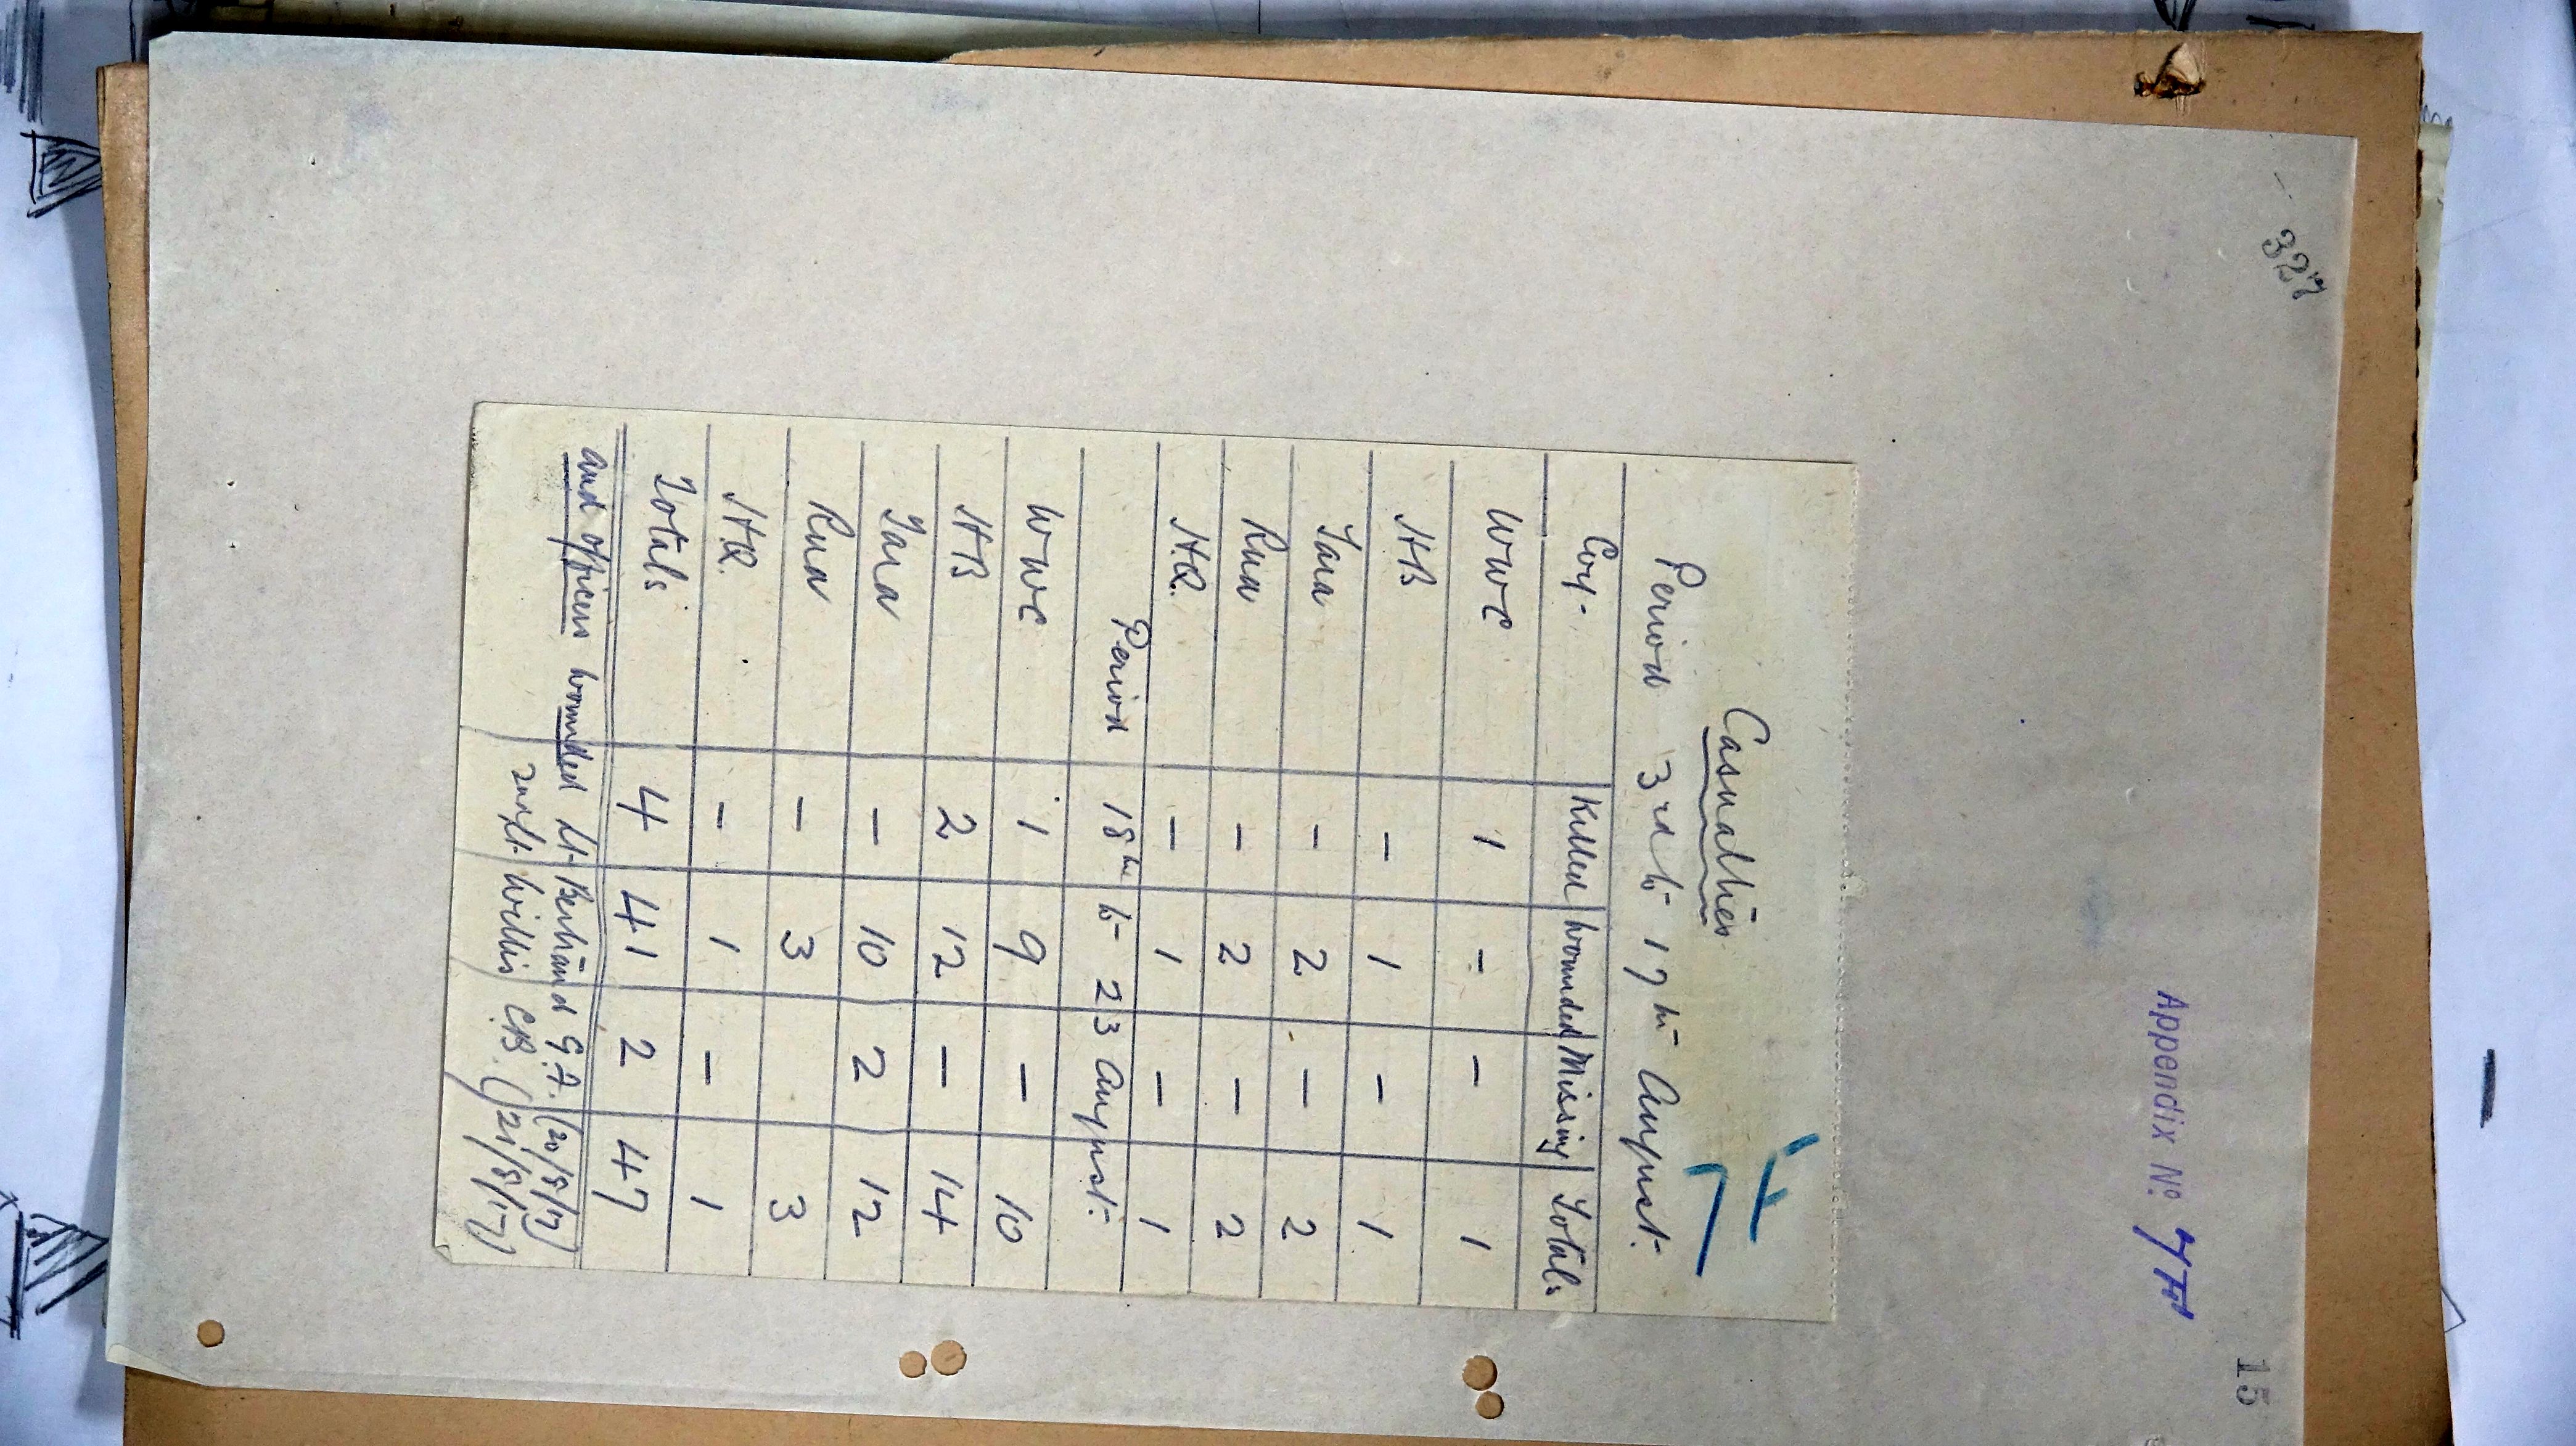 327
Appendix No. 7F
15
7F
Casualties
Period 3rd to 17th August.
Coy. Killed Wounded Missing Totals
WWC 1 - - 1
HB - 1 - 1
Tara - 2 - 2
Rua - 2 - 2
HQ. - 1 - 1
Period 18th to 23 August.
WWC 1 9 - 10
HB 2 12 - 14
Tara - 10 2 12
Rua - 3 3
HQ. - 1 - 1
Totals 4 41 2 47
and officers wounded Lt. Bertrand G.F. (20/8/17)
2nd/Lt. Willis C.B. (21/8/17)